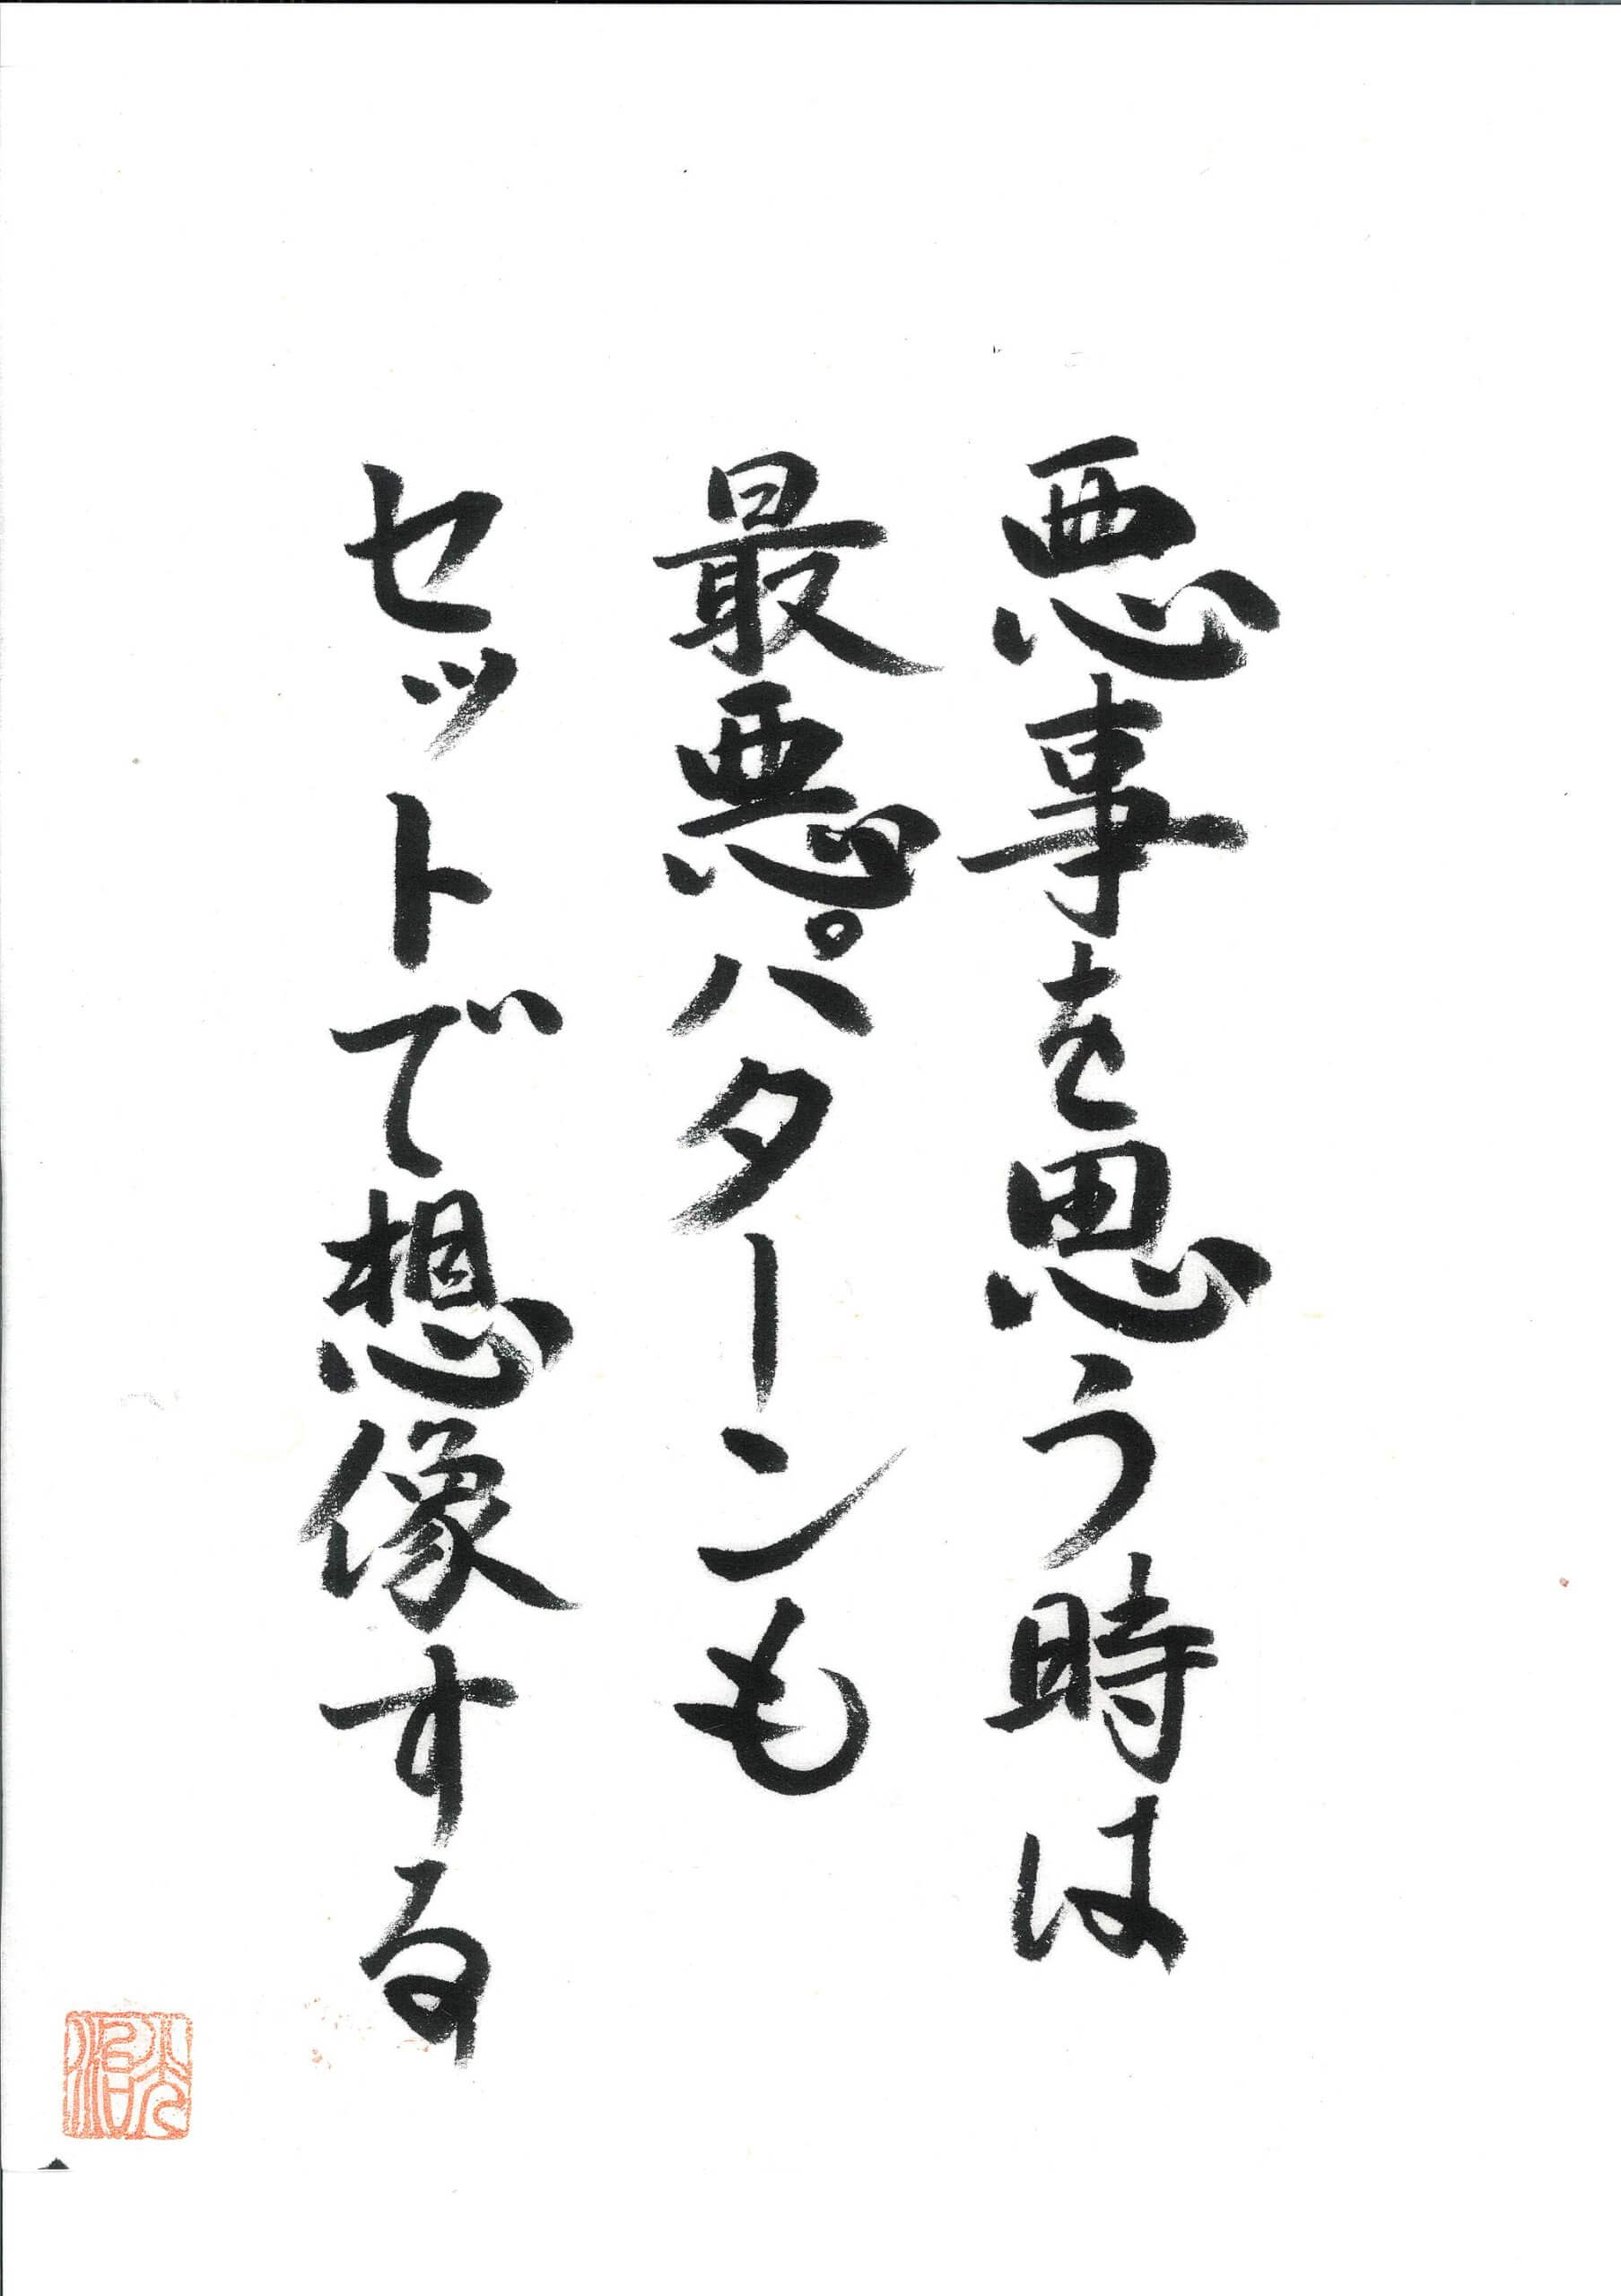 悪事を思う時は
最悪パターンも
セットで想像する